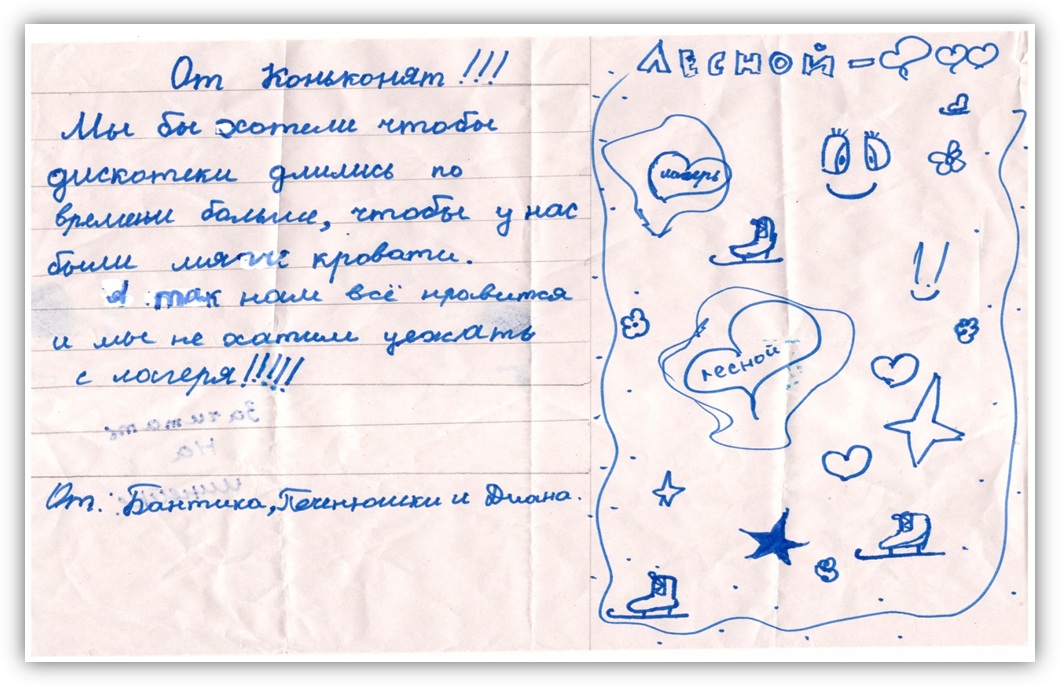 От Коньконят!!!
Мы бы хотели чтобы
дискотеки длились по
времени больше, чтобы у нас
были мягчи кровати.
А так нам всё нравится
и мы не хатим уезжать
с лагеря!!!!!
Зачитать
На
От: Бантика, Печенюшки и Диана.
ЛЕСНОЙ -
лагерь
!!
лесной